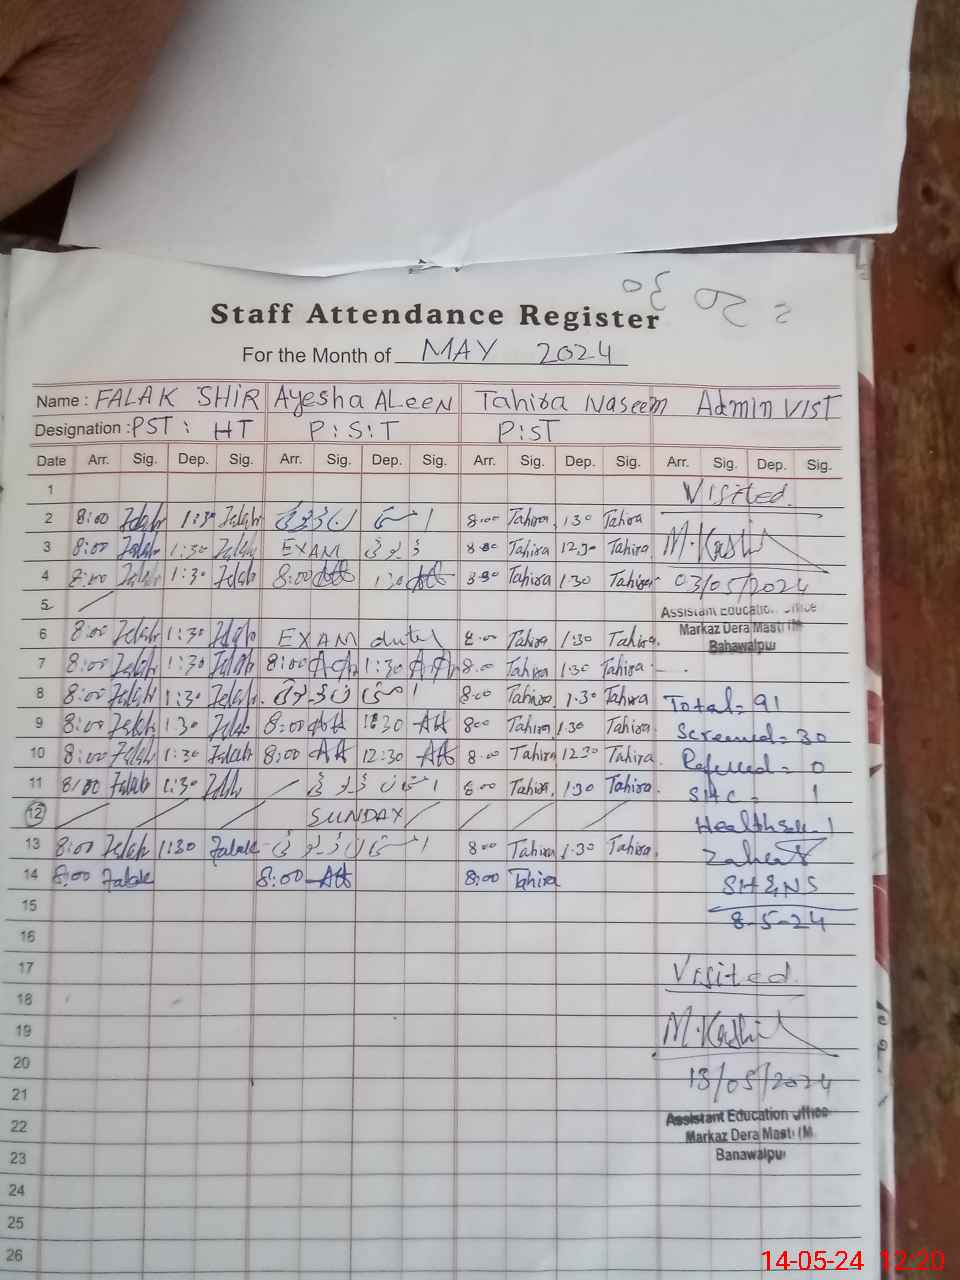 Staff Attendance Register
For the Month of MAY 2024
Name : FALAK SHIR Ayesha ALeeN Tahira Naseem Admin VIST
Designation : PST : HT P:S:T P:ST
Date Arr. Sig. Dep. Sig. Arr. Sig. Dep. Sig. Arr. Sig. Dep. Sig. Arr. Sig. Dep. Sig.
1 Visited
2 8:00 Falak 1:30 Falak 8:00 Tahira 1:30 Tahira
3 8:00 Falak 1:30 Falak EXAM ڈیوٹی 8:00 Tahira 12:30 Tahira M.Kashif
4 8:00 Falak 1:30 Falak 8:00 1:30 8:00 Tahira 1:30 Tahira 03/05/2024
5 Assistant Education Office
6 8:00 Falak 1:30 Falak EXAM duty 8:00 Tahira 1:30 Tahira Markaz Dera Masti (M
Bahawalpur
7 8:00 Falak 1:30 Falak 8:00 1:30 8:00 Tahira 1:30 Tahira
8 8:00 Falak 1:30 Falak 8:00 Tahira 1:30 Tahira Total = 91
9 8:00 Falak 1:30 Falak 8:00 8:00 Tahira 1:30 Tahira Screened = 30
10 8:00 Falak 1:30 Falak 8:00 12:30 8:00 Tahira 12:30 Tahira Referred = 0
11 8:00 Falak 1:30 Falak 8:00 Tahira 1:30 Tahira SHC = 1
12 SUNDAY
13 8:00 Falak 1:30 Falak 8:00 Tahira 1:30 Tahira
14 8:00 Falak 8:00 8:00 Tahira SH&NS
15 8-5-24
16
17 Visited
18
19 M.Kashif
20
21 13/05/2024
22 Assistant Education Office
Markaz Dera Masti (M
23 Banawalpur
24
25
26
14-05-24 12:20